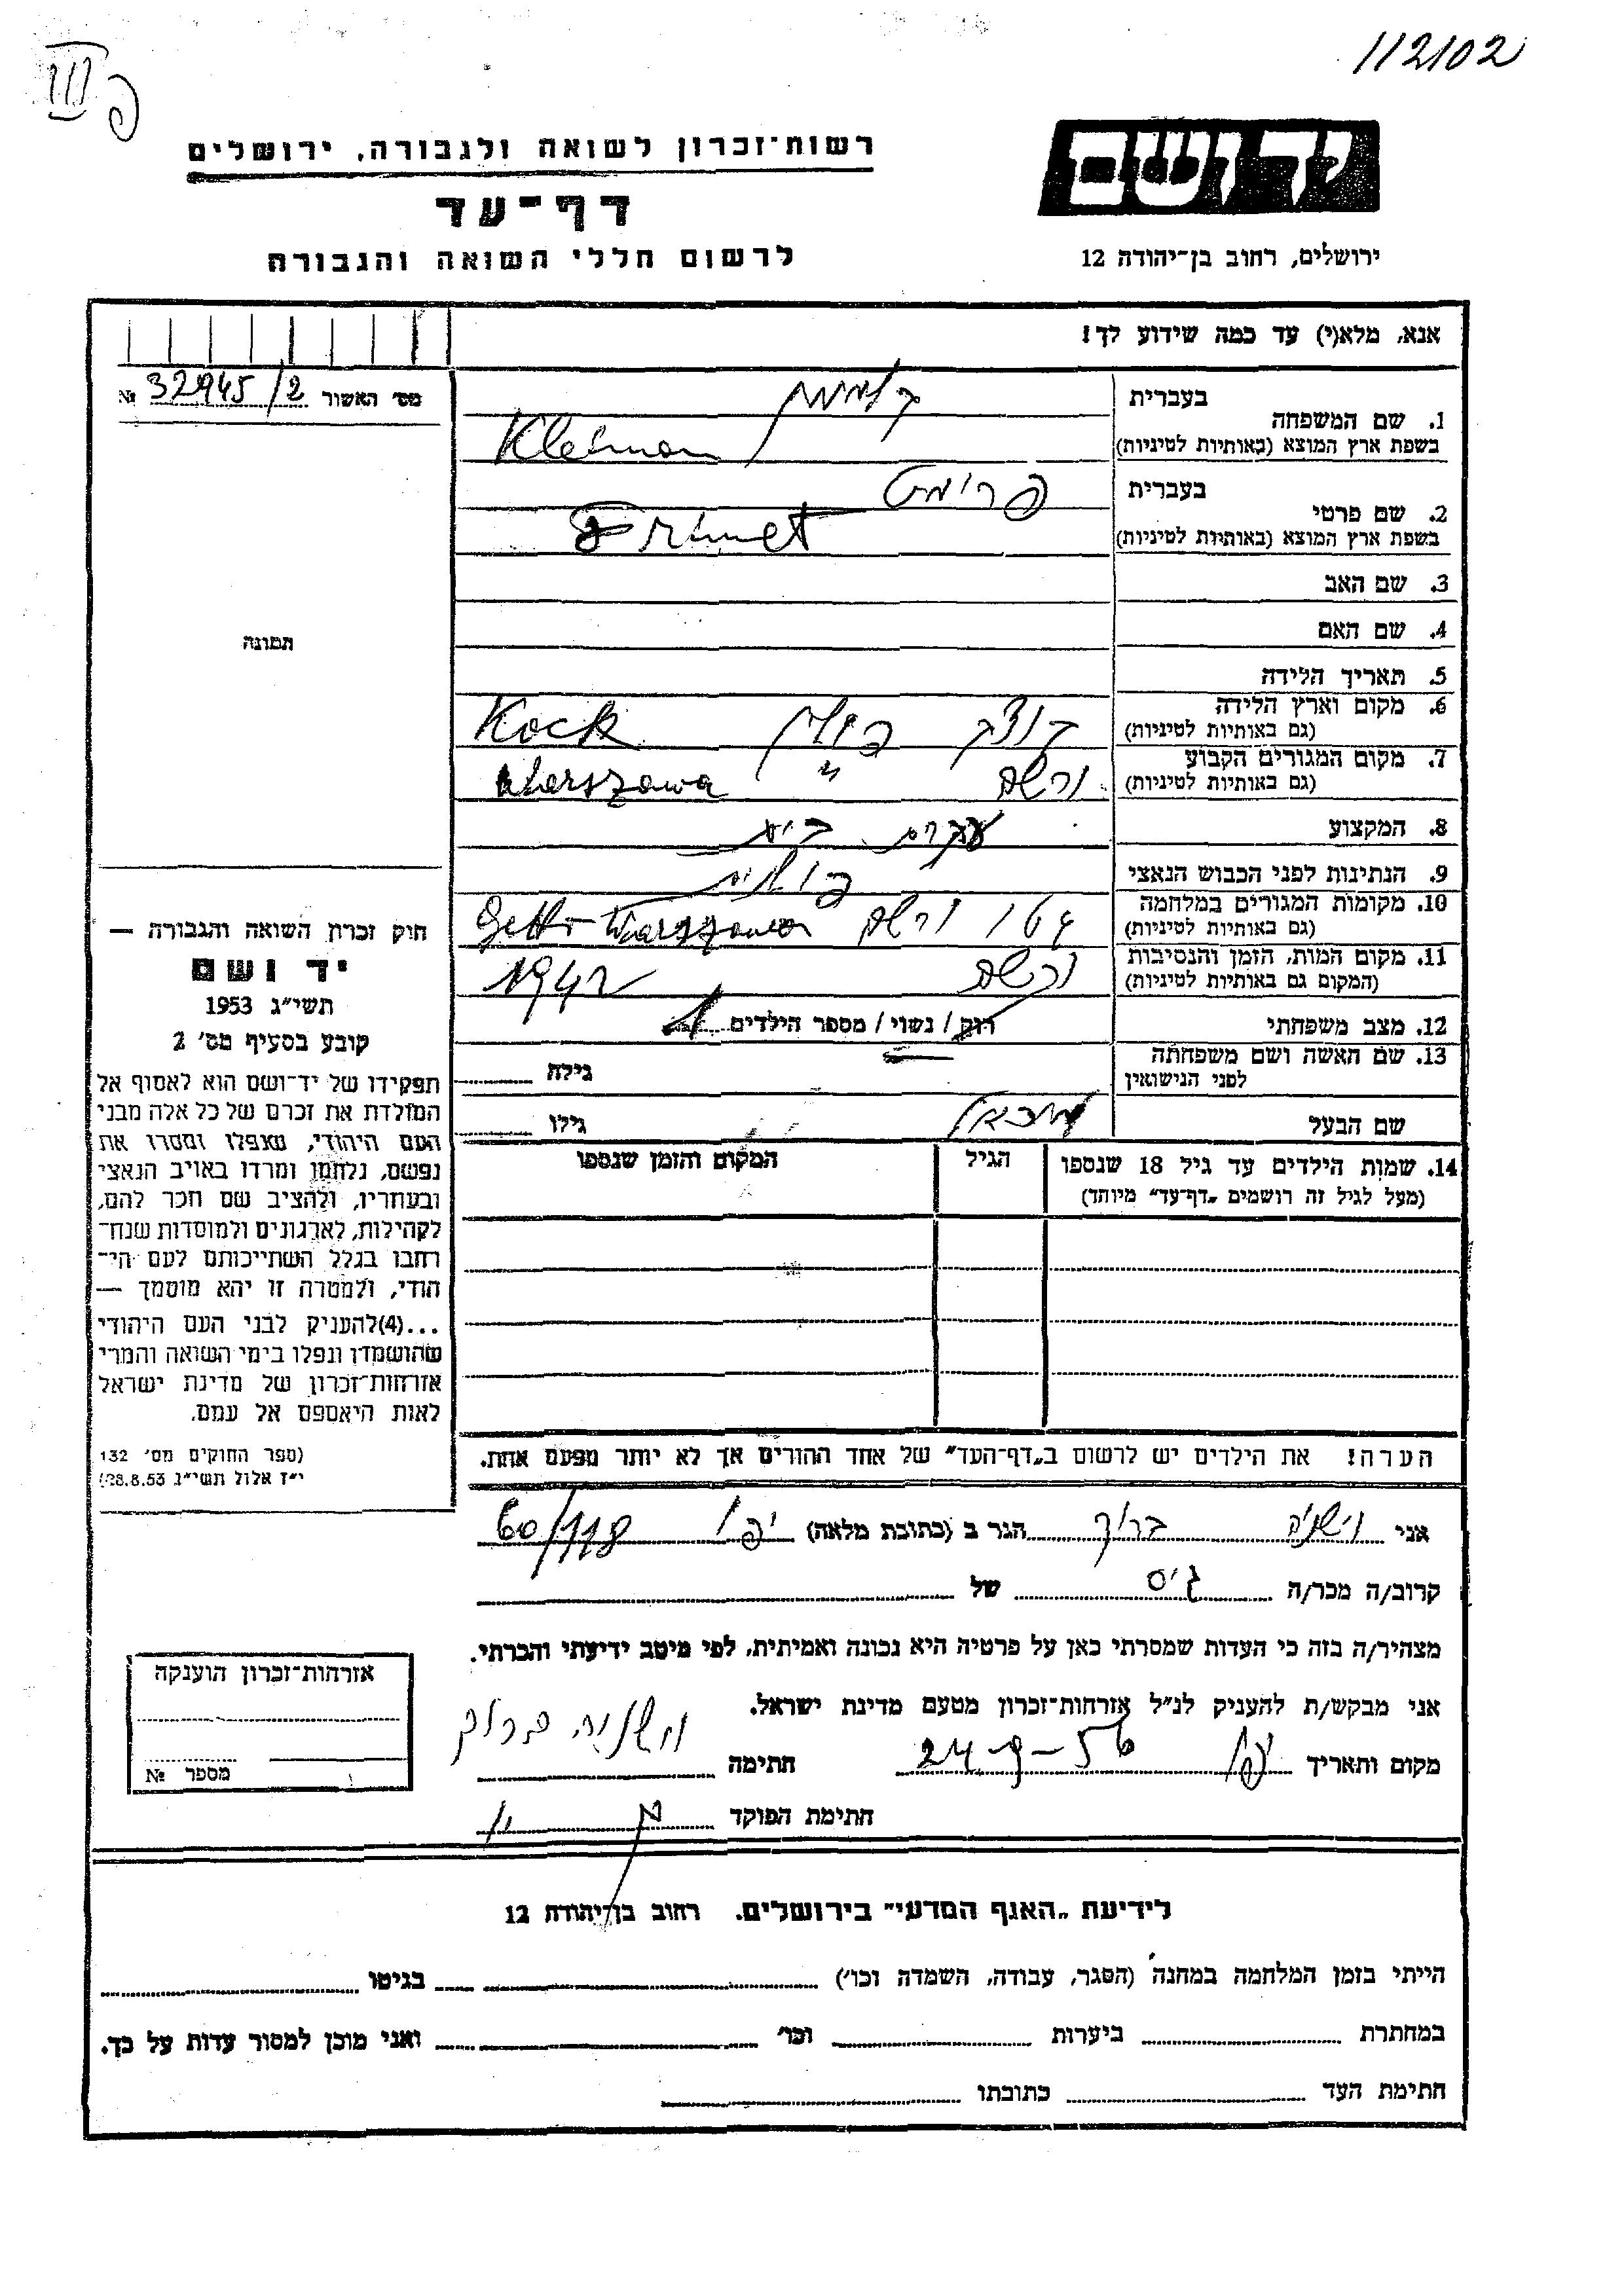 112102
רשות־זכרון לשואה ולגבורה, ירושלים
יד ושם
דף־עד
לרשום חללי השואה והגבורה
ירושלים, רחוב בן־יהודה 12
אנא, מלא(י) עד כמה שידוע לך!
מס׳ האשור 32945/2 №
1. שם המשפחה
בעברית
בשפת ארץ המוצא (באותיות לטיניות) Kleiman
2. שם פרטי
בעברית פרומט
בשפת ארץ המוצא (באותיות לטיניות) Frimet
3. שם האב
4. שם האם
תמונה
5. תאריך הלידה
6. מקום וארץ הלידה
(גם באותיות לטיניות) קוצק פולין Kock
7. מקום המגורים הקבוע
(גם באותיות לטיניות) ורשה Warszawa
8. המקצוע עקרת בית
9. הנתינות לפני הכבוש הנאצי פולנית
10. מקומות המגורים במלחמה
(גם באותיות לטיניות) גטו ורשה Getto Warszawa
11. מקום המות, הזמן והנסיבות
(המקום גם באותיות לטיניות) ורשה 1942
12. מצב משפחתי רוק / נשוי / מספר הילדים 1
13. שם האשה ושם משפחתה
לפני הנישואין גילה
שם הבעל מיכאל גילו
14. שמות הילדים עד גיל 18 שנספו
(מעל לגיל זה רושמים „דף־עד״ מיוחד)
הגיל
המקום והזמן שנספו
חוק זכרון השואה והגבורה —
יד ושם
תשי״ג 1953
קובע בסעיף מס׳ 2
תפקידו של יד־ושם הוא לאסוף אל
המולדת את זכרם של כל אלה מבני
העם היהודי, שנפלו ומסרו את
נפשם, נלחמו ומרדו באויב הנאצי
ובעוזריו, ולהציב שם וזכר להם,
לקהילות, לארגונים ולמוסדות שנח־
רבו בגלל השתייכותם לעם הי־
הודי, ולמטרה זו יהא מוסמך —
...(4) להעניק לבני העם היהודי
שהושמדו ונפלו בימי השואה והמרי
אזרחות־זכרון של מדינת ישראל
לאות היאספם אל עמם.
(ספר החוקים מס׳ 132
י״ז אלול תשי״ג 28.8.53)
הערה! את הילדים יש לרשום ב„דף־העד״ של אחד ההורים אך לא יותר מפעם אחת.
אני וישניה ברוך הגר ב (כתובת מלאה) יפו 60/118
קרוב/ה מכר/ה גיס של
מצהיר/ה בזה כי העדות שמסרתי כאן על פרטיה היא נכונה ואמיתית, לפי מיטב ידיעתי והכרתי.
אני מבקש/ת להעניק לנ״ל אזרחות־זכרון מטעם מדינת ישראל.
מקום ותאריך יפו 24-9-56 חתימה וישניה ברוך
חתימת הפוקד
אזרחות־זכרון הוענקה
מספר №
לידיעת „האגף המדעי״ בירושלים. רחוב בן־יהודה 12
הייתי בזמן המלחמה במחנה (הסגר, עבודה, השמדה וכו׳) בגיטו
במחתרת ביערות וכו׳ ואני מוכן למסור עדות על כך.
חתימת העד כתובתו